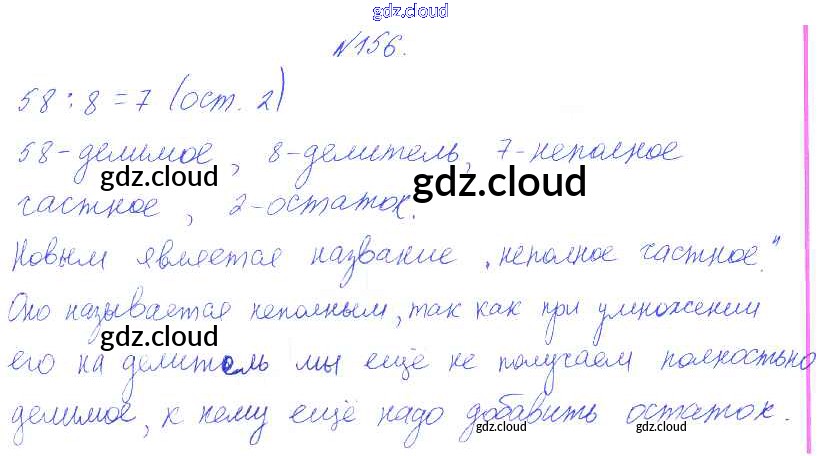 gdz.cloud
№156.
58 : 8 = 7 (ост. 2)
58-делимое, 8-делитель, 7-неполное
gdz.cloud gdz.cloud
частное, 2-остаток.
Новым является название „неполное частное."
Оно называется неполным, так как при умножении
gdz.cloud
его на делитель мы ещё не получаем полностью
делимое, к нему ещё надо добавить остаток.
gdz.cloud gdz.cloud